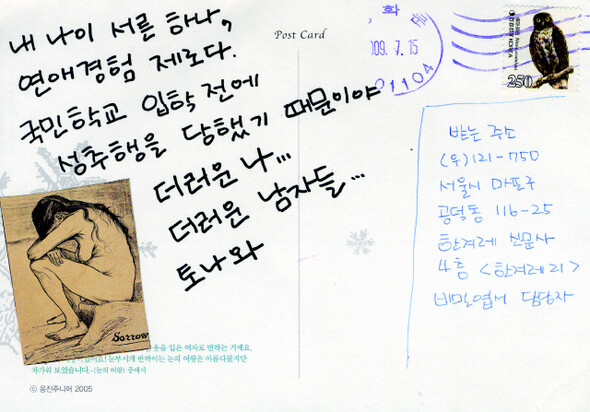 내 나이 서른 하나,
연애경험 제로다.
국민학교 입학 전에
성추행을 당했기 때문이야
더러운 나...
더러운 남자들...
토나와
Post Card
화
'09. 7. 15
01104
250
받는 주소
(우)121-750
서울시 마포구
공덕동 116-25
한겨레 신문사
4층 <한겨레21>
비밀엽서 담당자
Sorrow
옷을 입은 여자로 변하는 거예요.
눈부시게 반짝이는 눈의 여왕은 아름다웠지만
차가워 보였습니다.-〈눈의 여왕〉 중에서
ⓒ 웅진주니어 2005